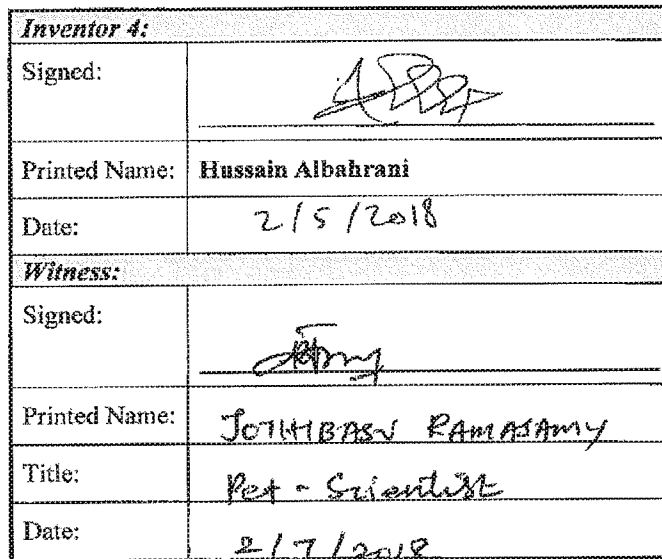 Inventor 4:
Signed:
Printed Name: Hussain Albahrani
Date: 2/5/2018
Witness:
Signed:
Printed Name: JOTHIBASU RAMASAMY
Title: Pet - Scientist
Date: 2/7/2018